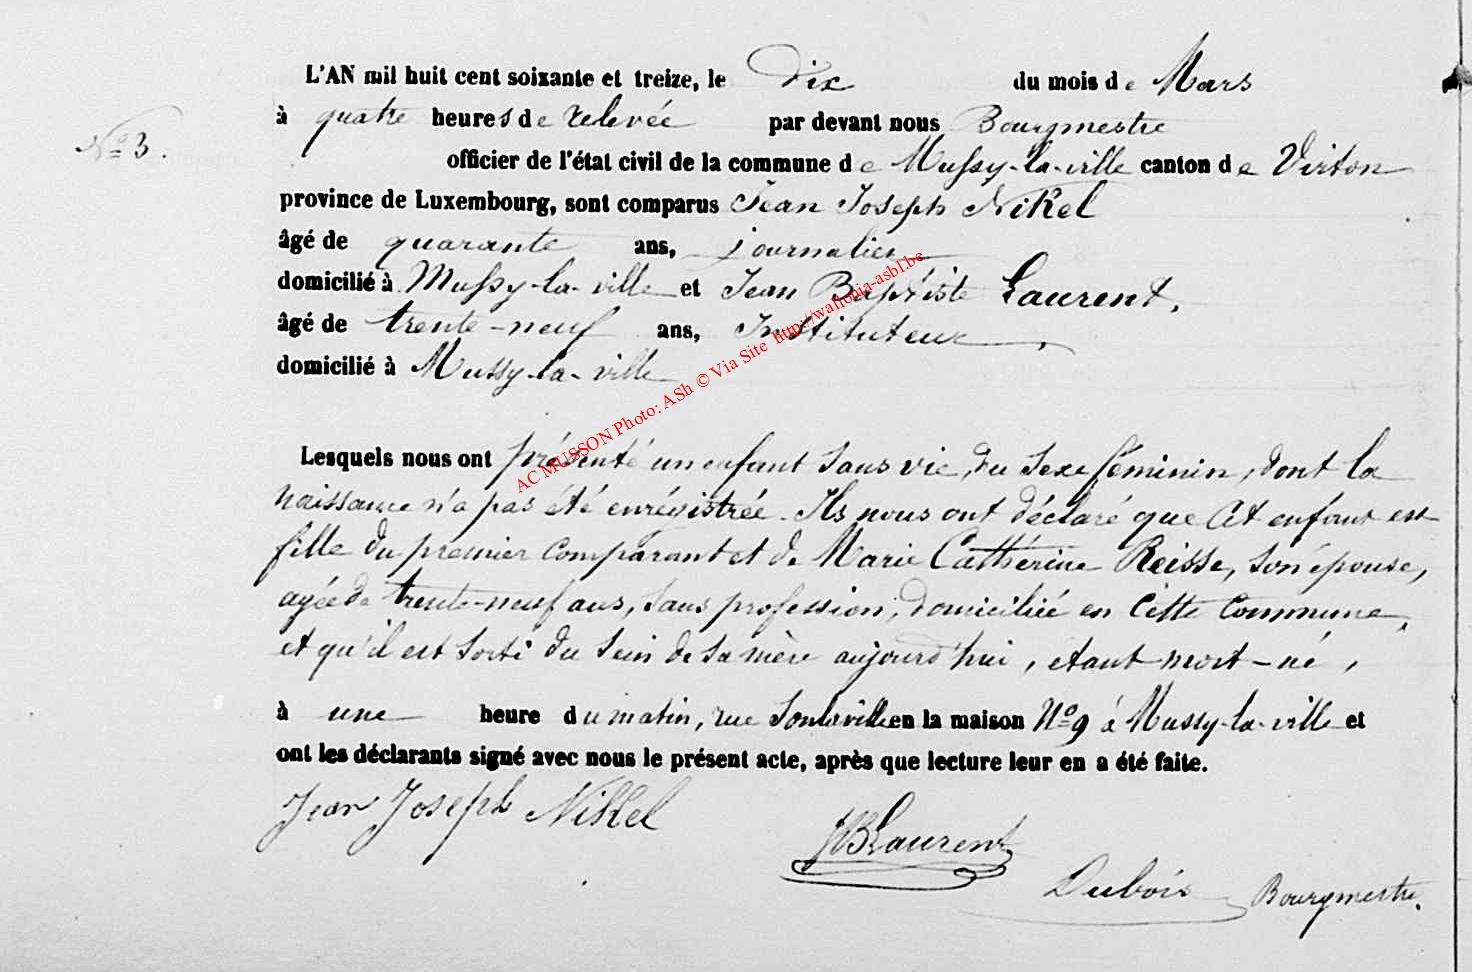 L'AN mil huit cent soixante et treize, le dix du mois de Mars
à quatre heures de relevée par devant nous Bourgmestre
No 3.
officier de l'état civil de la commune de Mussy-la-ville canton de Virton
province de Luxembourg, sont comparus Jean Joseph Nikel
âgé de quarante ans, journalier
domicilié à Mussy-la-ville et Jean Baptiste Laurent,
âgé de trente-neuf ans, Instituteur,
domicilié à Mussy-la-ville
AC MUSSON Photo: ASh © Via Site http://wallonia-asbl.be
Lesquels nous ont présenté un enfant sans vie, du sexe féminin, dont la
naissance n'a pas été enrégistrée. Ils nous ont déclaré que cet enfant est
fille du premier comparant et de Marie Cathérine Reisse, son épouse,
agée de trente-neuf ans, sans profession, domiciliée en cette commune,
et qu'il est sorti du sein de sa mère aujourd'hui, étant mort-né,
à une heure du matin, rue Sonlaville en la maison No 9 à Mussy-la-ville et
ont les déclarants signé avec nous le présent acte, après que lecture leur en a été faite.
Jean Joseph Nikel
JBLaurent
Dubois Bourgmestre.